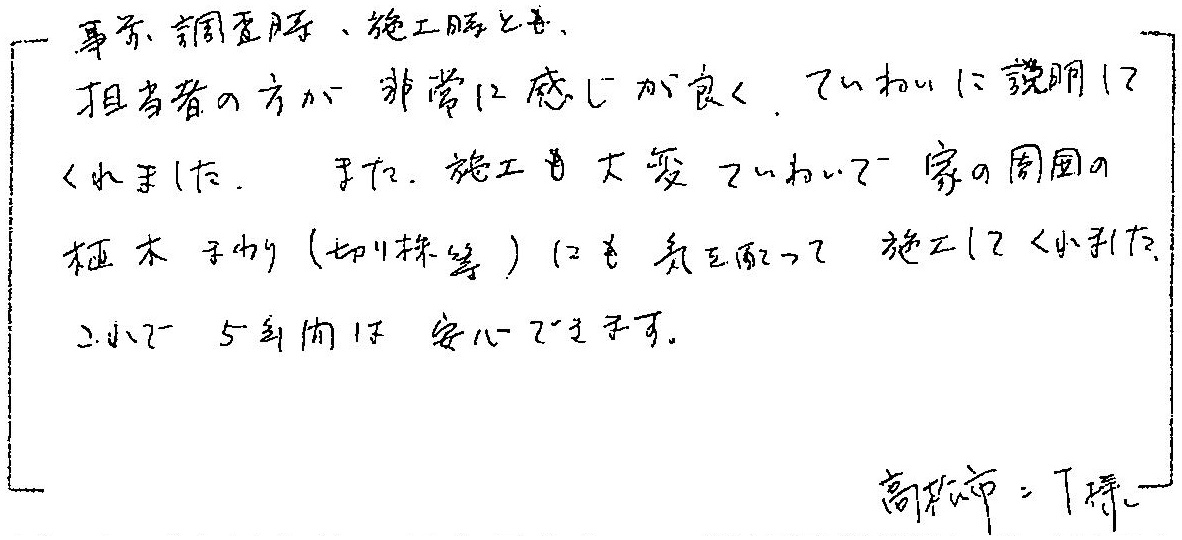 事前調査時、施工時とも、
担当者の方が 非常に感じが良く、ていねいに説明して
くれました。 また、施工も大変ていねいで 家の周囲の
植木まわり(切り株等)にも気を配って 施工してくれました。
これで 5年間は 安心できます。
高松市:T様